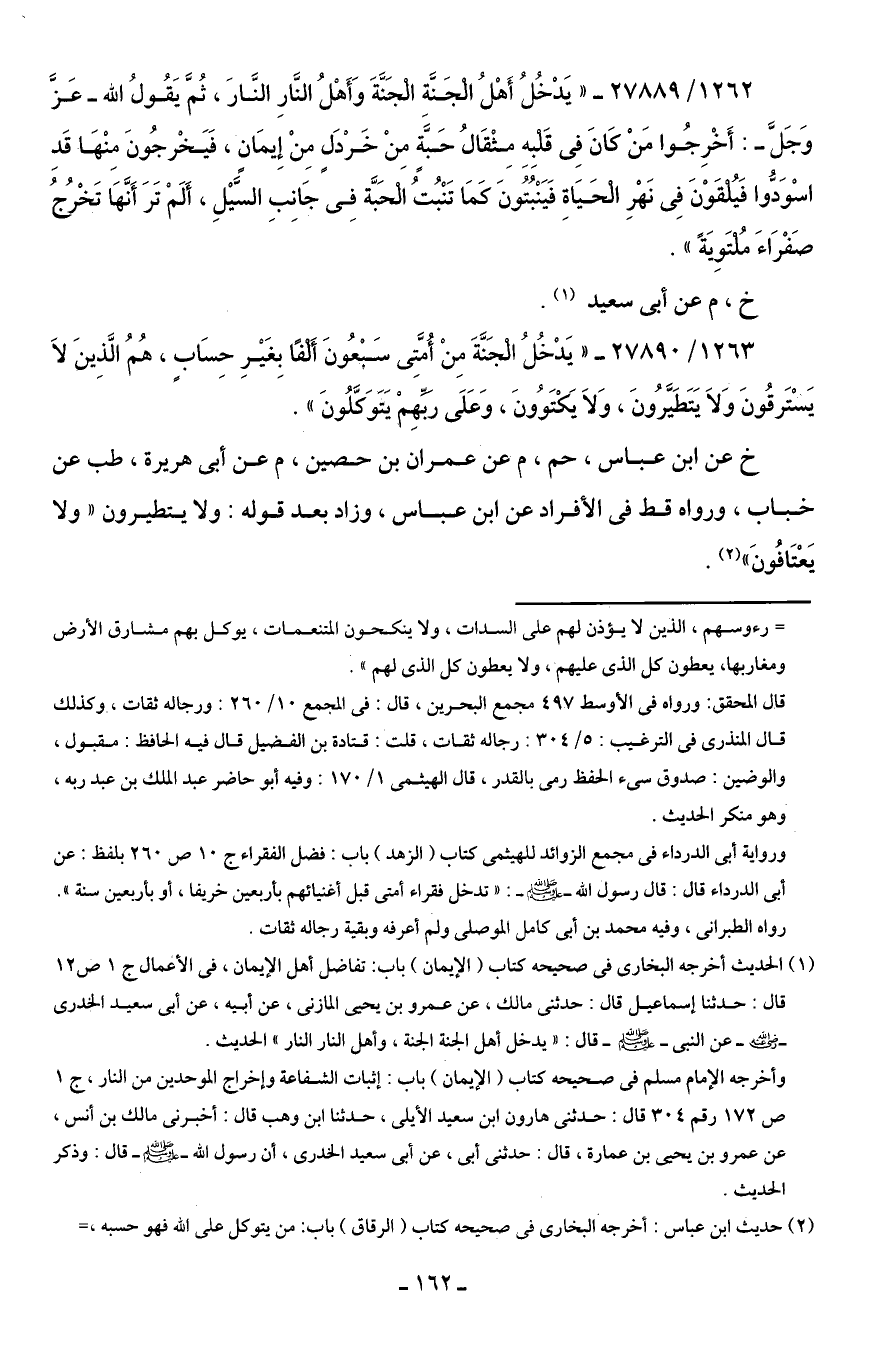 ١٢٦٢/ ٢٧٨٨٩ ـ « يَدْخُلُ أَهْلُ الْجَنَّةِ الْجَنَّةَ وَأَهْلُ النَّارِ النَّارَ ، ثُمَّ يَقُولُ الله ـ عَزَّ
وَجَلَّ ـ : أَخْرِجُوا مَنْ كَانَ فِى قَلْبِهِ مِثْقَالُ حَبَّةٍ مِنْ خَرْدَلٍ مِنْ إِيمَانٍ ، فَيَخْرِجُونَ مِنْهَا قَدِ
اسْوَدُّوا فَيُلْقَوْنَ فِى نَهْرِ الْحَيَاةِ فَيَنْبُتُونَ كَمَا تَنْبُتُ الْحَبَّةُ فِى جَانِبِ السَّيْلِ ، أَلَمْ تَرَ أَنَّهَا تَخْرُجُ
صَفْرَاءَ مُلْتَوِيَةً » .
خ ، م عن أبى سعيد (١) .
١٢٦٣/ ٢٧٨٩٠ ـ « يَدْخُلُ الْجَنَّةَ مِنْ أُمَّتِى سَبْعُونَ أَلْفًا بِغَيْرِ حِسَابٍ ، هُمُ الَّذِينَ لاَ
يَسْتَرِقُونَ وَلاَ يَتَطَيَّرُونَ ، وَلاَ يَكْتَوُونَ ، وَعَلَى رَبِّهِمْ يَتَوَكَّلُونَ » .
خ عن ابن عباس ، حم ، م عن عمران بن حصين ، م عن أبى هريرة ، طب عن
خباب ، ورواه قط فى الأفراد عن ابن عباس ، وزاد بعد قوله : ولا يتطيرون « ولا
يَعْتَافُونَ»(٢) .
= رءوسهم ، الذين لا يؤذن لهم على السدات ، ولا ينكحون المتنعمات ، يوكل بهم مشارق الأرض
ومغاربها، يعطون كل الذى عليهم ، ولا يعطون كل الذى لهم » .
قال المحقق: ورواه فى الأوسط ٤٩٧ مجمع البحرين ، قال : فى المجمع ١٠/ ٢٦٠ : ورجاله ثقات ، وكذلك
قال المنذرى فى الترغيب : ٥/ ٣٠٤ : رجاله ثقات ، قلت : قتادة بن الفضيل قال فيه الحافظ : مقبول ،
والوضين : صدوق سىء الحفظ رمى بالقدر ، قال الهيثمى ١/ ١٧٠ : وفيه أبو حاضر عبد الملك بن عبد ربه ،
وهو منكر الحديث .
ورواية أبى الدرداء فى مجمع الزوائد للهيثمى كتاب ( الزهد ) باب : فضل الفقراء ج ١٠ ص ٢٦٠ بلفظ : عن
أبى الدرداء قال : قال رسول الله ـ ﷺ ـ : « تدخل فقراء أمتى قبل أغنيائهم بأربعين خريفا ، أو بأربعين سنة ».
رواه الطبرانى ، وفيه محمد بن أبى كامل الموصلى ولم أعرفه وبقية رجاله ثقات .
(١) الحديث أخرجه البخارى فى صحيحه كتاب ( الإيمان ) باب: تفاضل أهل الإيمان ، فى الأعمال ج ١ ص١٢
قال : حدثنا إسماعيل قال : حدثنى مالك ، عن عمرو بن يحيى المازنى ، عن أبيه ، عن أبى سعيد الخدرى
ـ رضي الله عنه ـ عن النبى ـ ﷺ ـ قال : « يدخل أهل الجنة الجنة ، وأهل النار النار » الحديث .
وأخرجه الإمام مسلم فى صحيحه كتاب ( الإيمان ) باب : إثبات الشفاعة وإخراج الموحدين من النار ، ج ١
ص ١٧٢ رقم ٣٠٤ قال : حدثنى هارون ابن سعيد الأيلى ، حدثنا ابن وهب قال : أخبرنى مالك بن أنس ،
عن عمرو بن يحيى بن عمارة ، قال : حدثنى أبى ، عن أبى سعيد الخدرى ، أن رسول الله ـ ﷺ ـ قال : وذكر
الحديث .
(٢) حديث ابن عباس : أخرجه البخارى فى صحيحه كتاب ( الرقاق ) باب: من يتوكل على الله فهو حسبه ،=
ـ ١٦٢ ـ